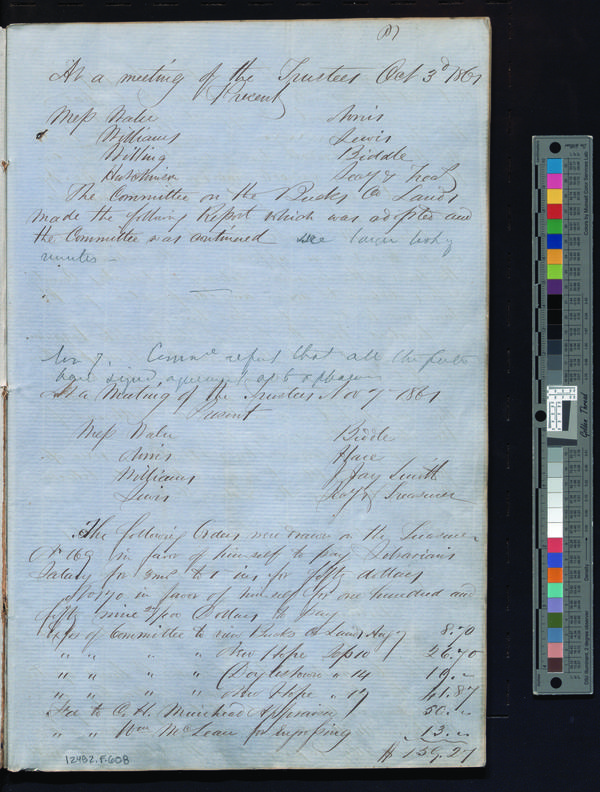 At a meeting of the Trustees Oct 3d 1861
Present
Mess Waln Norris
Williams Lewis
Willing Biddle
Hutchinson Secy & Trea
The Committee on the Bucks Co Lands
made the following Report which was adopted and
the Committee was continued see
minutes
Nov 7. Comme report that all the
have signed
At a Meeting of the Trustees Nov 7 1861
Present
Mess Waln Biddle
Norris Hare
Williams J Jay Smith
Lewis Secy & Treasurer
The following Orders were drawn on the Treasurer
No 169 in favor of himself to pay Librarians
Salary for 3mos to 1 ins for fifty dollars
No 170 in favor of himself for one hundred and
fifty nine 27/100 Dollars to pay
Exps of Committee to view Bucks Co Lands Aug 7 8.70
" " " " New Hope Sep 10 26.70
" " " " Doylestown " 14 19. "
" " " " New Hope " 17 41.87
Fee to C. H. Muirhead Appraising 50. "
" " Wm McLean for engrossing 13. "
$ 159.27
12492.F.608